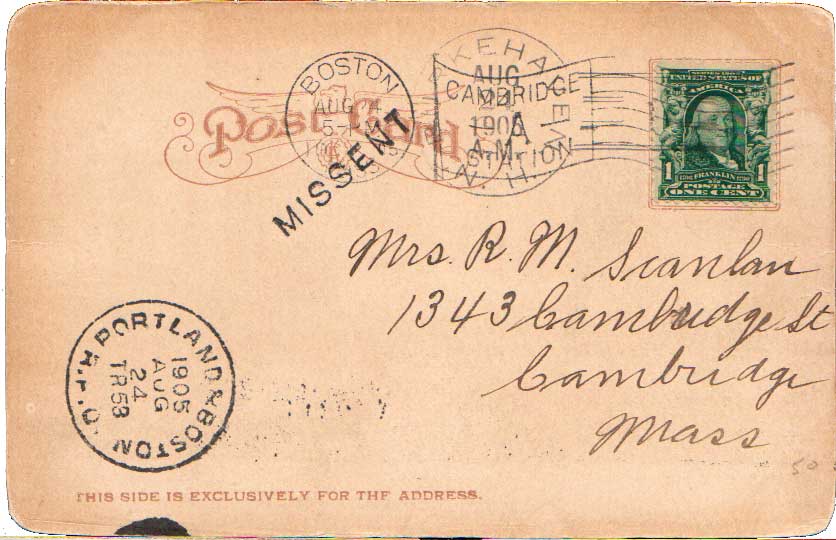 Post Card
BOSTON
AUG 24
1905
MISSENT
AUG
24
1905
A.M.
N.H.
CAMBRIDGE
STATION
SERIES 1902
UNITED STATES OF
AMERICA
1 FRANKLIN 1
POSTAGE
ONE CENT
Mrs. R. M. Scanlan
1343 Cambridge St
Cambridge
Mass
PORTLAND & BOSTON R.P.O.
1905
AUG
24
TR58
50
THIS SIDE IS EXCLUSIVELY FOR THE ADDRESS.